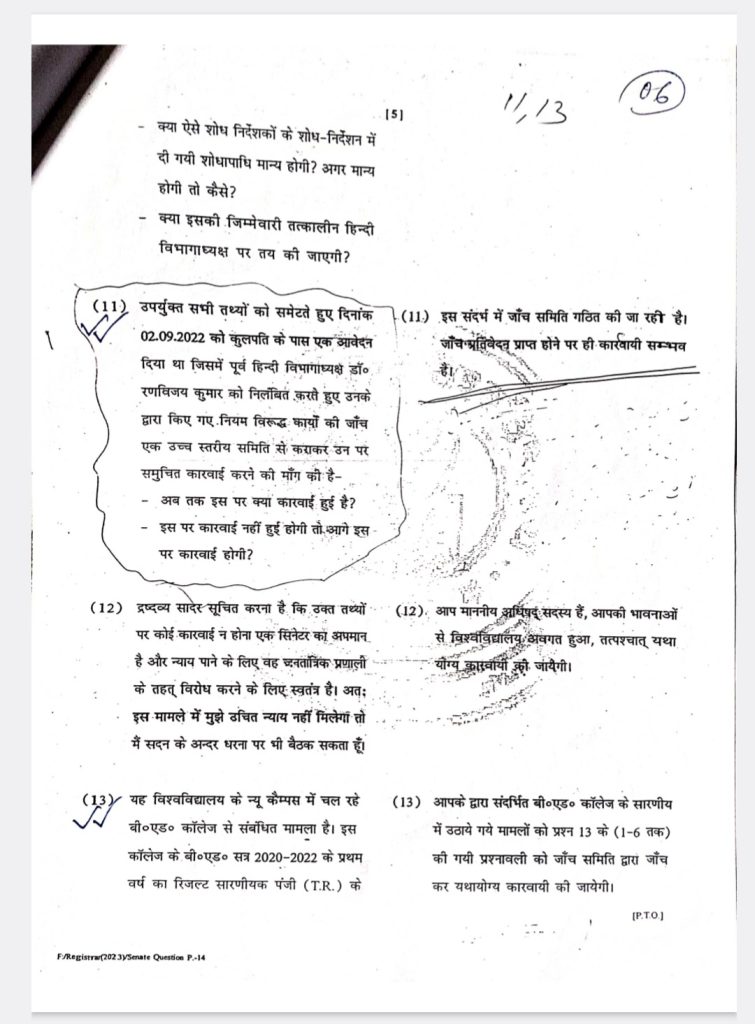 11,13
06
[5]
- क्या ऐसे शोध निर्देशकों के शोध-निर्देशन में
दी गयी शोधापाधि मान्य होगी? अगर मान्य
होगी तो कैसे?
- क्या इसकी जिम्मेवारी तत्कालीन हिन्दी
विभागाध्यक्ष पर तय की जाएगी?
(11) उपर्युक्त सभी तथ्यों को समेटते हुए दिनांक
02.09.2022 को कुलपति के पास एक आवेदन
दिया था जिसमें पूर्व हिन्दी विभागाध्यक्ष डॉ०
रणविजय कुमार को निलंबित करते हुए उनके
द्वारा किए गए नियम विरूद्ध कार्यो की जाँच
एक उच्च स्तरीय समिति से कराकर उन पर
समुचित कारवाई करने की माँग की है-
- अब तक इस पर क्या कारवाई हुई है?
- इस पर कारवाई नहीं हुई होगी तो आगे इस
पर कारवाई होगी?
(11.) इस संदर्भ में जाँच समिति गठित की जा रही है।
जाँच प्रतिवेदन प्राप्त होने पर ही कारवायी सम्भव
है।
(12) द्रष्दव्य सादर सूचित करना है कि उक्त तथ्यों
पर कोई कारवाई न होना एक सिनेटर का अपमान
है और न्याय पाने के लिए वह जनतांत्रिक प्रणाली
के तहत् विरोध करने के लिए स्वतंत्र है। अतः
इस मामले में मुझे उचित न्याय नहीं मिलेगा तो
मैं सदन के अन्दर धरना पर भी बैठक सकता हूँ।
(12). आप माननीय अधिषद् सदस्य हैं, आपकी भावनाओं
से विश्वविद्यालय अवगत हुआ, तत्पश्चात् यथा
योग्य कारवायी की जायेगी।
(13) यह विश्वविद्यालय के न्यू कैम्पस में चल रहे
बी०एड० कॉलेज से संबंधित मामला है। इस
कॉलेज के बी०एड० सत्र 2020-2022 के प्रथम
वर्ष का रिजल्ट सारणीयक पंजी (T.R.) के
(13) आपके द्वारा संदर्भित बी०एड० कॉलेज के सारणीय
में उठाये गये मामलों को प्रश्न 13 के (1-6 तक)
की गयी प्रश्नावली को जाँच समिति द्वारा जाँच
कर यथायोग्य कारवायी की जायेगी।
[P.T.O.]
F:/Registrar(2023)/Senate Question P.-14